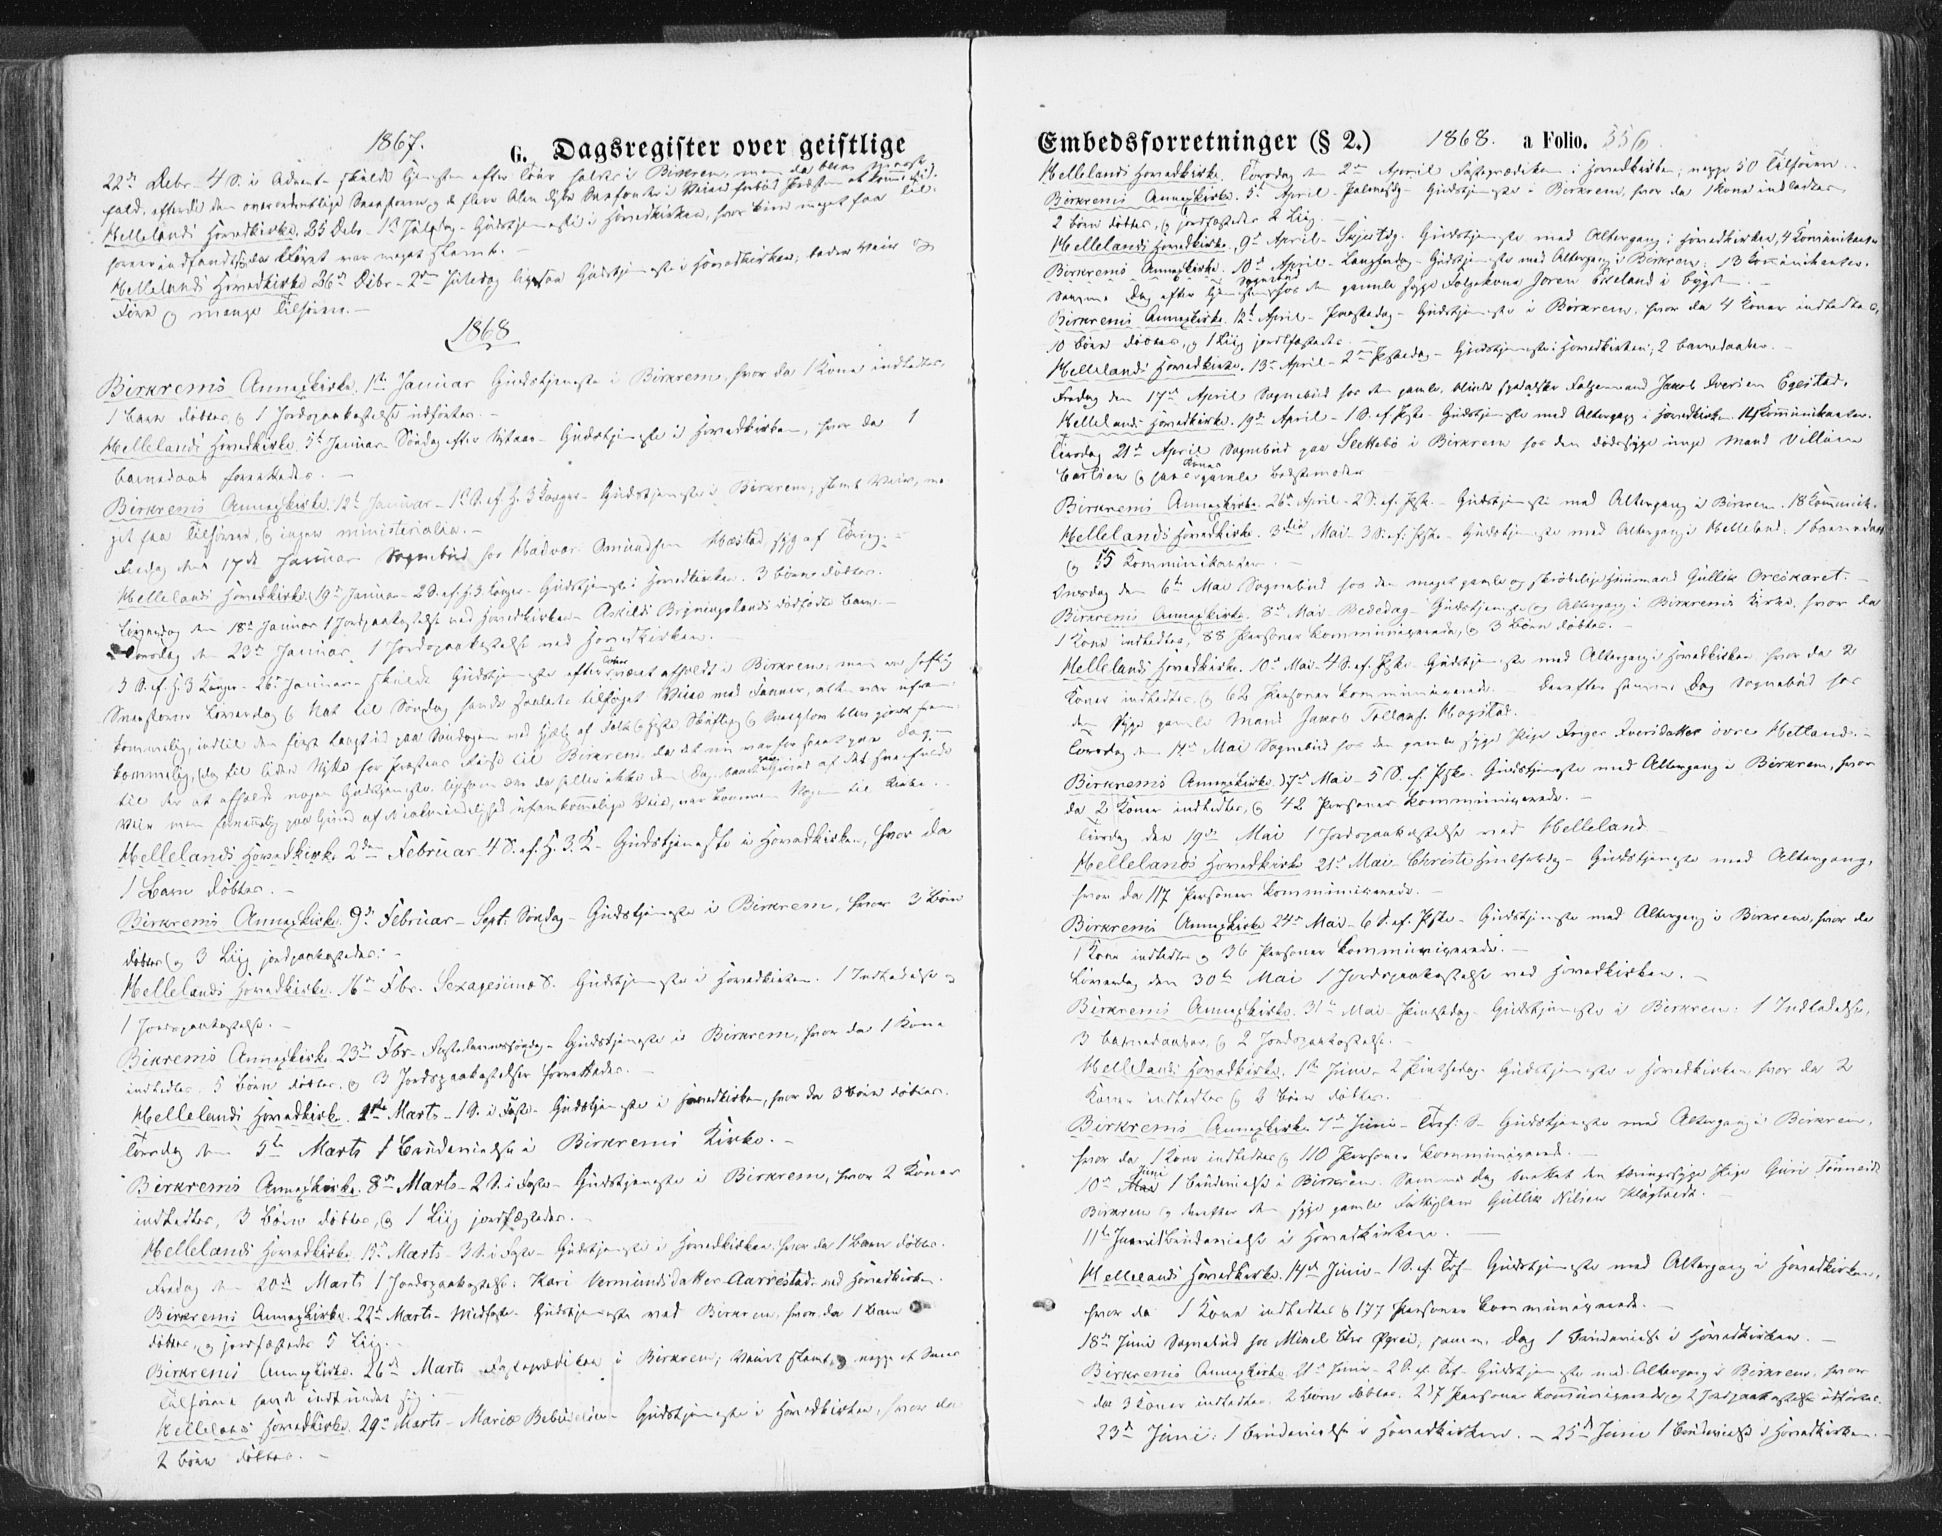 1867.
G. Dagsregister over geistlige
22de Debr. 4 S. i Advent skulde Tjenesten efter Tour holdes i Birkrem, men da blev
Hellelands Hovedkirke. 25 Debr. 1st Juledag - Gudstjeneste i Hovedkirken, hvor kun meget faa Til-
hørere indfandt sig, da Føret var meget slemt.
Hellelands Hovedkirke 26de Debr. 2den Juledag ligesaa Gudstjeneste i Hovedkirken; bedre Veir og
Føre og mange Tilhørere. -
1868
Birkrems Annexkirke. 1ste Januar Gudstjeneste i Birkrem, hvor da 1 Kone indlededes,
1 Barn døbtes, og 1 Jordspaakastelse udførtes. -
Hellelands Hovedkirke. 5te Januar Søndag efter Nytaar - Gudstjeneste i Hovedkirken, hvor da 1
barnedaab forrettedes. -
Birkrems Annexkirke. 12te Januar - 1ste S. ef. H. 3 Konger - Gudstjeneste i Birkrem; slemt Veir, me-
get faa Tilhørere, og ingen ministerialia. -
Fredag den 17de Januar Sognebud hos Hadvar Omundsen Mæstad, syg af Tæring. -
Hellelands Hovedkirke. 19de Januar - 2 S. ef. H. 3 Konger - Gudstjeneste i Hovedkirken. 3 børn døbtes.
Løverdag den 18de Januar 1 Jordspaakastelse ved Hovedkirken - Askilds Bryningslands dødfødte barn. -
Torsdag den 23de Januar. 1 Jordspaakastelse ved Hovedkirken. -
3 S. ef. H. 3 Konger - 26de Januar - skulde Gudstjeneste efter Touren været afholdt i Birkrem, men en heftig
Sneestorm Løverdag og Nat til Søndag havde saaledes tilføget Veiene med Fanner, at de var ufrem-
Hellelands Hovedkirke 2den Februar 4 S. ef. H. 3. K. - Gudstjeneste i Hovedkirken, hvor da
1 Barn døbtes. -
Birkrems Annexkirke. 9de Februar - Sept. Søndag - Gudstjeneste i Birkrem, hvor 3 Børn
døbtes og 3 Liig jordpaakastedes. -
Hellelands Hovedkirke. 16de Fbr. Sexagesima S. Gudstjeneste i Hovedkirken. 1 Indledelse og
1 Jordspaakastelse. -
Birkrems Annexkirke. 23de Fbr - Fastelavnssøndag - Gudstjeneste i Birkrem, hvor da 1 Kone
indledtes. 5 børn døbtes, og 3 Jordspaakastelser forrettedes. -
Hellelands Hovedkirke. 1ste Marts - 1 S. i Faste - Gudstjeneste i Hovedkirken, hvor da 3 børn døbtes.
Torsdag den 5te Marts 1 Brudevielse i Birkrems Kirke. -
Birkrems Annexkirke. 8de Marts - 2 S. i Faste - Gudstjeneste i Birkrem, hvor 2 Koner
indledtes, 3 Børn døbtes, og 1 Liig jordfæstedes. -
Hellelands Hovedkirke. 15de Marts - 3 S. i Faste - Gudstjeneste i Hovedkirken, hvor da 1 Barn døbtes.
Fredag den 20de Marts 1 Jordspaakastelse: Kari Vermundsdatter Aarrestad: ved Hovedkirken.
Birkrems Annexkirke. 22de Marts - Midfaste - Gudstjeneste ved Birkrem, hvor da 1 Barn
døbtes, og jordfæstedes 5 Liig. -
Birkrems Annexkirke. 26de Marts Fasteprædiken i Birkrem; Veiret slemt, og neppe et Snes
Tilhørere havde indfundet sig. -
Hellelands Hovedkirke. 29de Marts - Mariæ Bebudelse - Gudstjeneste i Hovedkirken, hvor da
2 Børn døbtes. -
Embedsforretninger (§ 2.) 1868. a Folio. 356
Hellelands Hovedkirke. Torsdag den 2den April Fasteprædiken i Hovedkirken; neppe 50 Tilhørere. -
Birkrems Annexkirke. 5te April - Palmesdg - Gudstjeneste i Birkrem, hvor da 1 Kone indledtes,
2 børn døbtes, og jordfæstedes 2 Liig -
Hellelands Hovedkirke. 9de April - Skjertdg. Gudstjeneste med Altergang i Hovedkirken, 4 Kommunikanter
Birkrems Annexkirke. 10de April - Langfredag - Gudstjeneste med Altergang i Birkrem. 13 Kommunikanter.
Samme Dag efter Tjenesten Sognebud hos den gamle syge Føljekone Joren Eikeland i bygden. -
Birkrems Annexkirke. 12te April - Paaskedag - Gudstjeneste i Birkrem, hvor da 4 Koner indledtes,
10 børn døbtes, og 1 Liig jordfæstedes. -
Hellelands Hovedkirke. 13de April - 2den Paaskedag - Gudstjeneste i Hovedkirken; 2 barnedaaber. -
Fredag den 17de April Sognebud hos den gamle, blinde spedalske Føljemand Jakob Iversen Egestad.
Hellelands Hovedkirke. 19de April - 1 S. ef. Paaske - Gudstjeneste med Altergang i Hovedkirken. 14 Kommunikanter.
Tirsdag 21de April Sognebud paa Slettebø i Birkrem hos den dødssyge unge Mand Villum
Bertsen og hans Kones gamle Bedstemoder
Birkrems Annexkirke. 26de April - 2 S. ef. Paaske - Gudstjeneste med Altergang i Birkrem. 18 Kommunik.
Hellelands Hovedkirke. 3die Mai - 3 S. ef. Paaske - Gudstjeneste med Altergang i Helleland. 1 barnedaab
og 15 Kommunikanter. -
Onsdag den 6te Mai Sognebud hos den meget gamle og skrøbelige Huusmand Gullik Oreskaret. -
Birkrems Annexkirke. 8de Mai - Bededag - Gudstjeneste og Altergang i Birkrems Kirke, hvor da
1 Kone indledtes, 88 Personer kommunicerede, og 3 børn døbtes. -
Hellelands Hovedkirke. 10de Mai - 4 S. ef. Paaske - Gudstjeneste med Altergang i Hovedkirken hvor da 2
Koner indledtes, og 62 Personer kommunicerede - Derefter samme Dag Sognebud hos
den syge gamle Mand Jakob Tollaks. Hogstad.
Torsdag den 14de Mai Sognebud hos den gamle syge Pige Inger Iversdatter øvre Hetland. -
Birkrems Annexkirke 17de Mai - 5 S. ef. Paaske. Gudstjeneste med Altergang i Birkrem, hvor
da 2 Koner indledtes, og 42 Personer kommunicerede. -
Tirsdag den 19de Mai 1 Jordspaakastelse ved Helleland
Hellelands Hovedkirke 21de Mai - Christi Himmelfartsdg - Gudstjeneste med Altergang,
hvor da 117 Personer kommunicerede. -
Birkrems Annexkirke 24de Mai - 6 S. ef. Paaske - Gudstjeneste med Altergang i Birkrem, hvor da
1 Kone indledtes og 36 Personer kommunicerede. -
Løverdag den 30te Mai 1 Jordspaakastelse ved Hovedkirken. -
Birkrems Annexkirke. 31te Mai - Pintsedag - Gudstjeneste i Birkrem: 1 Indledelse,
3 barnedaaber, og 2 Jordspaakastelse. -
Hellelands Hovedkirke. 1ste Juni - 2 Pintsedag - Gudstjeneste i Hovedkirken, hvor da 2
Koner indledtes og 3 børn døbtes.
Birkrems Annexkirke 7de Juni - Tref. S. - Gudstjeneste med Altergang i Birkrem,
hvor da 1 Kone indledtes og 110 Personer kommunicerede. -
10de Juni 1 Brudevielse i Birkrem. Samme dag besøgt den tæringssyge Pige Guri Tønnesd.
Birkrem og derefter den syge gamle Fattiglem Gullik Nilsen Klogtveit. -
11te Juni 1 Brudevielse i Hovedkirken. -
Hellelands Hovedkirke. 14de Juni - 1 S. ef. Tref - Gudstjeneste med Altergang i Hovedkirken,
hvor da 1 Kone indledtes og 177 Personer kommunicerede. -
18de Juni Sognebud hos Mikel Øgrei, samme Dag 1 Brudevielse i Hovedkirken. -
Birkrems Annexkirke 21de Juni - 2 S. ef. Tref - Gudstjeneste med Altergang i Birkrem, hvor
da 3 Koner indledtes. 2 børn døbtes. 217 Personer kommunicerede og 2 Jordspaakastelse udførtes.
23de Juni: 1 Brudevielse i Hovedkirken. - 25de Juni 1 Brudevielse i Hovedkirken. -